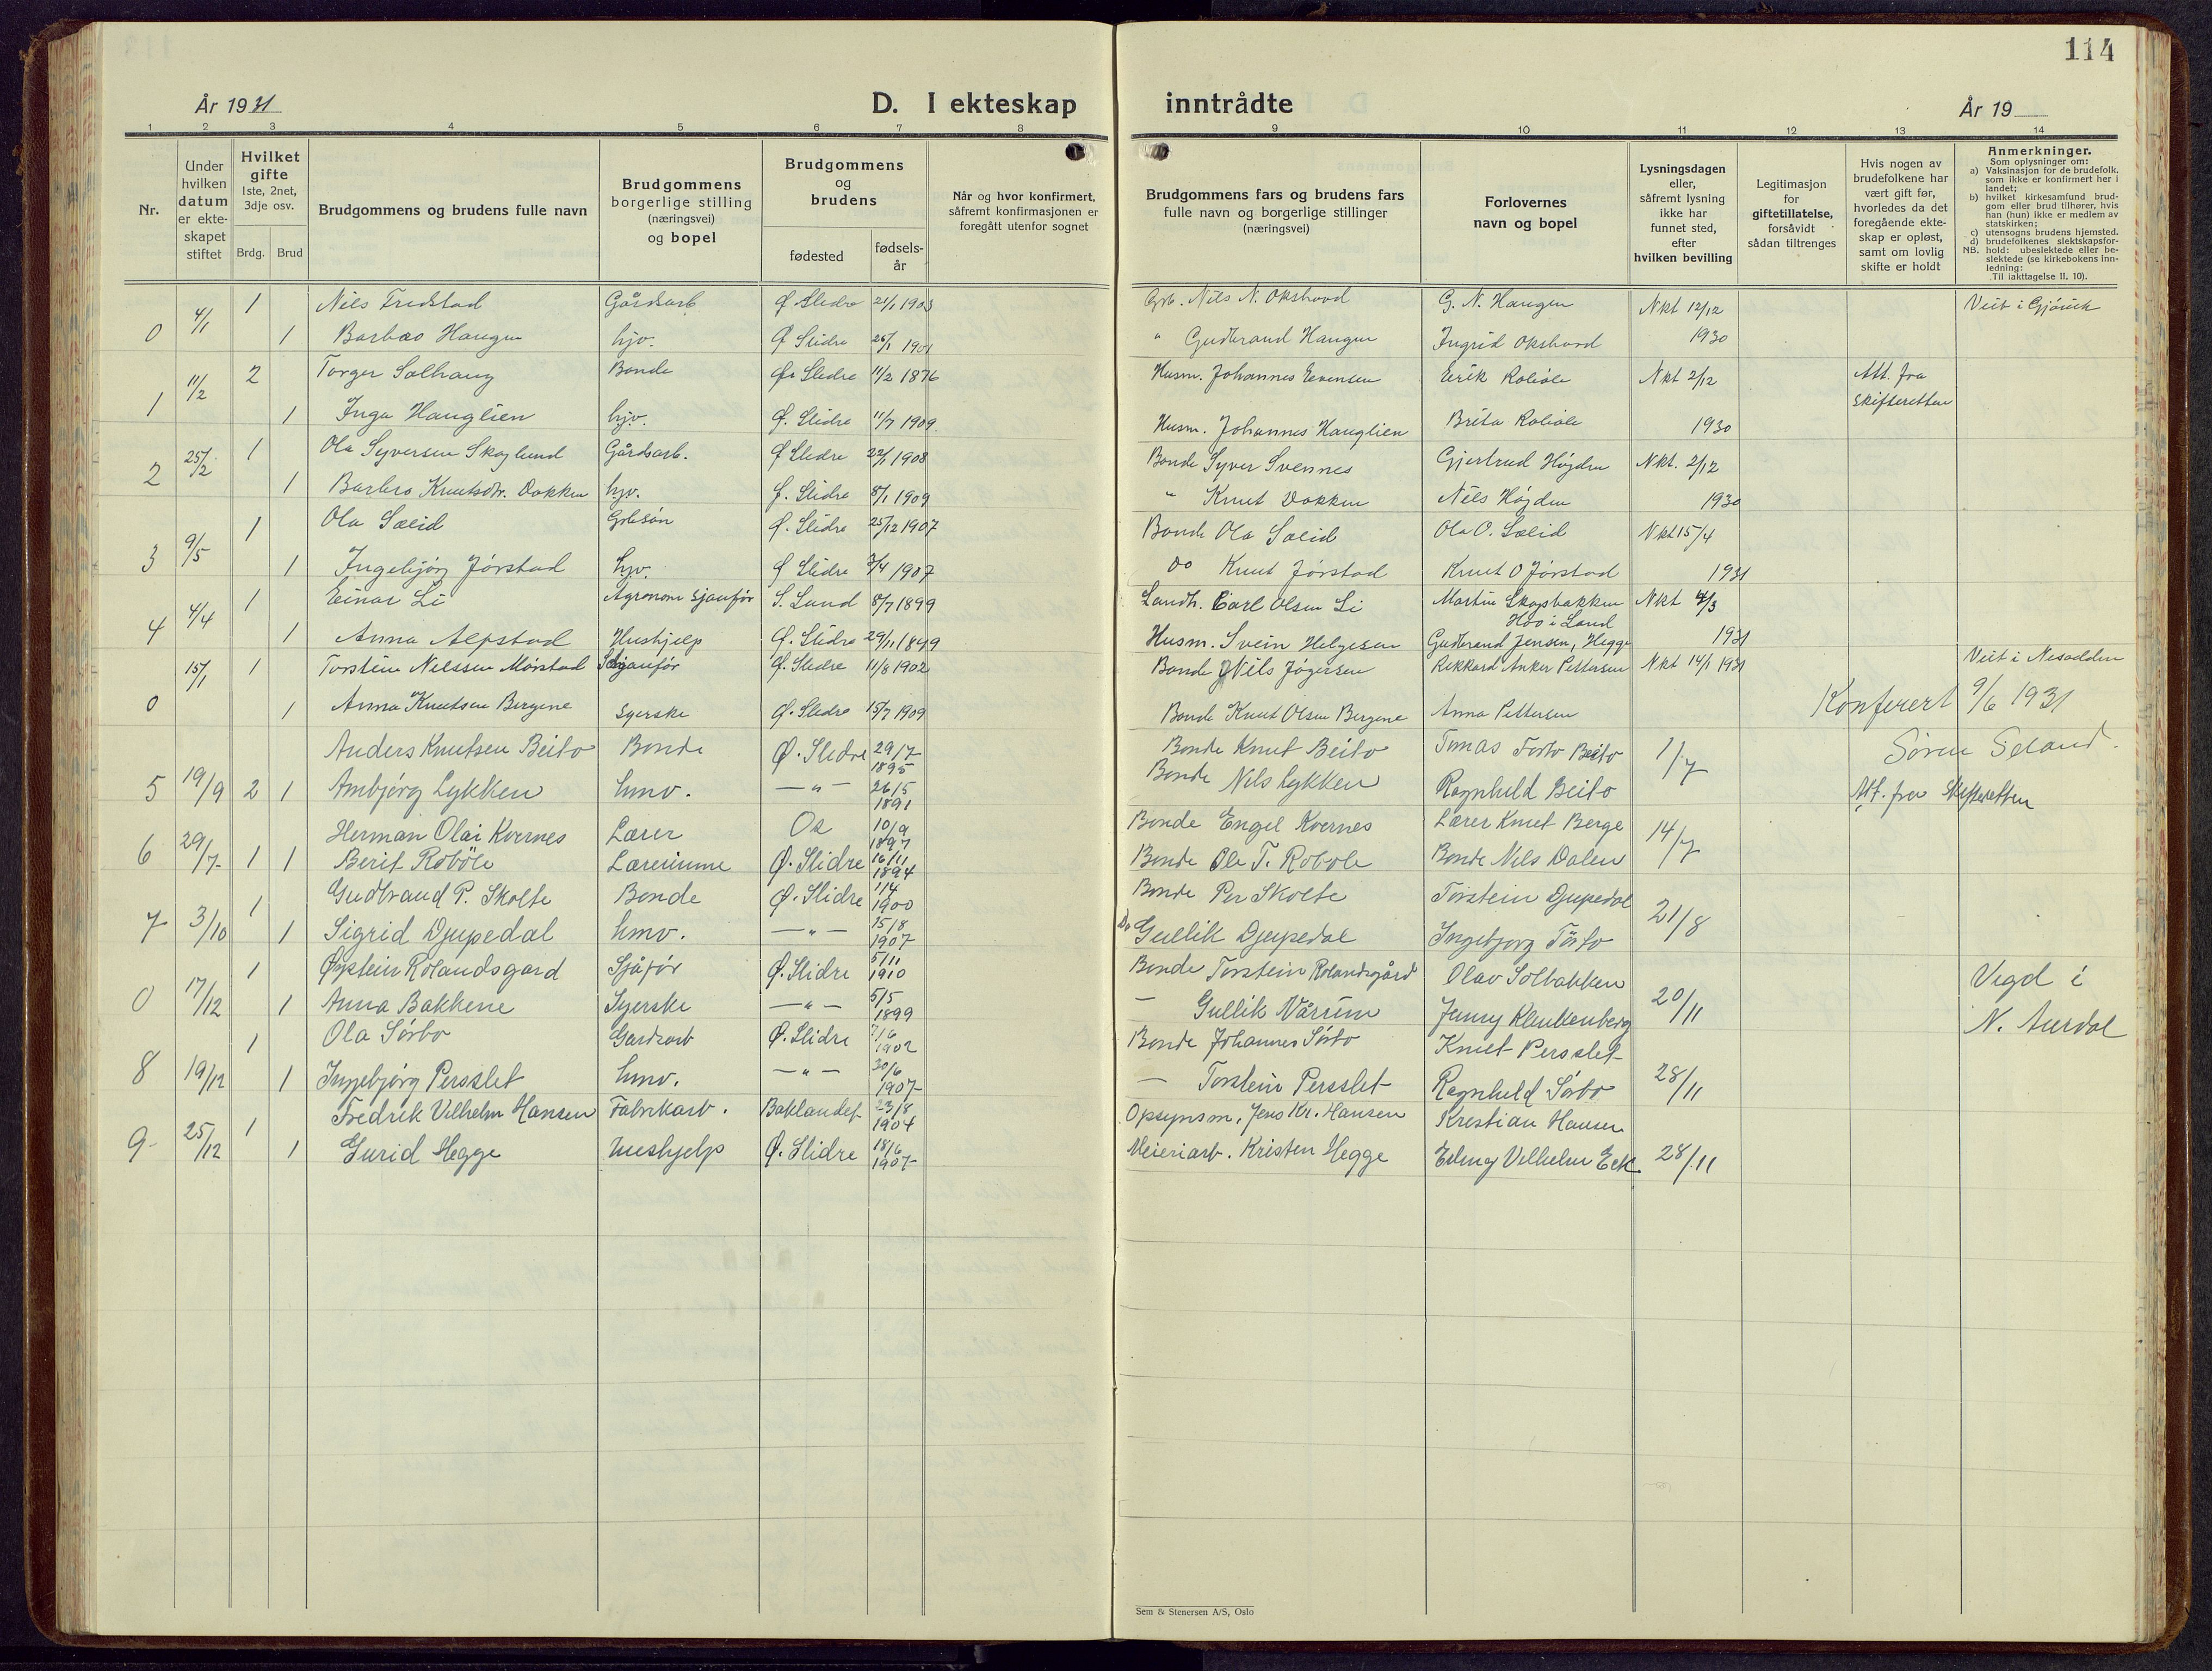 114
År 1931
D. I ekteskap inntrådte
År 19
1 2 3 4 5 6 7 8 9 10 11 12 13 14
Nr.
Under hvilken datum er ekteskapet stiftet
Hvilket gifte
1ste, 2net, 3dje osv.
Brdg. Brud
Brudgommens og brudens fulle navn
Brudgommens borgerlige stilling (næringsvei) og bopel
Brudgommens og brudens
fødested
fødselsår
Når og hvor konfirmert, såfremt konfirmasjonen er foregått utenfor sognet
Brudgommens fars og brudens fars fulle navn og borgerlige stillinger (næringsvei)
Forlovernes navn og bopel
Lysningsdagen eller, såfremt lysning ikke har funnet sted, efter hvilken bevilling
Legitimasjon for giftetillatelse, forsåvidt sådan tiltrenges
Hvis nogen av brudefolkene har vært gift før, hvorledes da det foregående ekteskap er opløst, samt om lovlig skifte er holdt
Anmerkninger.
Som oplysninger om:
a) Vaksinasjon for de brudefolk. som ikke er konfirmert her i landet;
b) hvilket kirkesamfund brudgom eller brud tilhører, hvis han (hun) ikke er medlem av statskirken;
c) utensogns brudens hjemsted.
d) brudefolkenes slektskapsforhold: ubeslektede eller beslektede (se kirkebokens innledning:
NB. Til iakttagelse II. 10).
0 4/1 1 Nils Fredstad Gårdsarb. Ø Slidre 21/1 1903 Grb. Nils N. Okshovd G. N. Haugen Nkt 12/12 Viet i Gjøvik
1 Barbro Haugen hjv. Ø Slidre 26/1 1901 " Gudbrand Haugen Ingrid Okshovd 1930
1 11/2 2 Torger Solhaug Bonde Ø. Slidre 11/2 1876 Husm. Johannes Evensen Eirik Robøle Nkt 2/12 Att. fra skifteretten
1 Inga Hauglien hjv. Ø. Slidre 11/7 1909 Husm. Johannes Hauglien Brita Robøle 1930
2 25/2 1 Ola Syversen Skoglund Gårdsarb. Ø Slidre 22/1 1908 Bonde Syver Svennes Gjertrud Høyden Nkt. 2/12
1 Barbro Knutsdtr. Dokken hjv. Ø. Slidre 8/1 1909 " Knut Dokken Nils Høyden 1930
3 9/5 1 Ola Sælid Grbsøn Ø. Slidre 25/12 1907 Bonde Ola Sælid Ola O. Sælid Nkt 15/4
1 Ingebjørg Jørstad hjv. Ø Slidre 3/4 1907 Do Knut Jørstad Knut O Jørstad 1931
4 4/4 1 Einar Li Agronom sjaufør S. Land 8/7 1899 Landh. Carl Olsen Li Martin Skogsbakken Hov i Land Nkt 4/3
1 Anna Alfstad Hushjelp Ø. Slidre 29/11 1899 Husm. Svein Helgesen Gudbrand Jensen, Hegge 1931
0 15/1 1 Torstein Nilssen Mørstad Sjaufør Ø. Slidre 11/8 1902 Bonde Nils Jøgersen Rikkard Anker Pettersen Nkt 14/1 1931 Viet i Nesodden
1 Anna Knutsen Bergene Syerske Ø. Slidre 15/7 1909 Bonde Knut Olsen Bergene Anna Pettersen
Konferert 9/6 1931
Søren Seland.
5 19/9 2 1 Anders Knutsen Beito Bonde Ø. Slidre 29/7 1895 Bonde Knut Beito Tomas Beito 1/7
Ambjørg Lykken hmv. — " — 26/5 1891 Bonde Nils Lykken Ragnhild Beito Att. fra Skifteretten
6 29/7 1 1 Herman Olai Kvernes Lærer Os 10/9 1897 Bonde Engel Kvernes Lærer Knut Berge 14/7
Berit Robøle Lærerinne Ø. Slidre 16/11 1894 Bonde Ole T. Robøle Bonde Nils Dalen
7 3/10 1 Gudbrand P. Skolte Bonde Ø. Slidre 1/4 1900 Bonde Per Skolte Torstein Djupedal 21/8
1 Sigrid Djupedal hmv. — " — 15/8 1907 Do Gullik Djupedal Ingebjørg
0 17/12 1 Øystein Rolandsgard Sjåfør Ø. Slidre 5/11 1910 Bonde Torstein Rolandsgård Olav Solbakken 20/11 Vigd i N. Aurdal
1 Anna Bakkene Syerske — " — 5/5 1899 — Gullik Vårum Jenny Klinkenberg
8 19/12 1 Ola Sørbo Gardsarb Ø. Slidre 7/6 1902 Bonde Johannes Sørbo Knut Persslet 28/11
1 Ingebjørg Persslet hmv. — " — 30/6 1907 — Torstein Persslet Ragnhild Sørbo
9 25/12 1 Fredrik Vilhelm Hansen Fabrikarb. Baklandet 23/8 1904 Opsynsm. Jens Kr. Hansen Kristian Hansen 28/11
1 Gurid Hegge Hushjelp Ø. Slidre 18/6 1907 Meieriarb. Kristen Hegge Erling Vilhelm Eek.
Sem & Stenersen A/S, Oslo